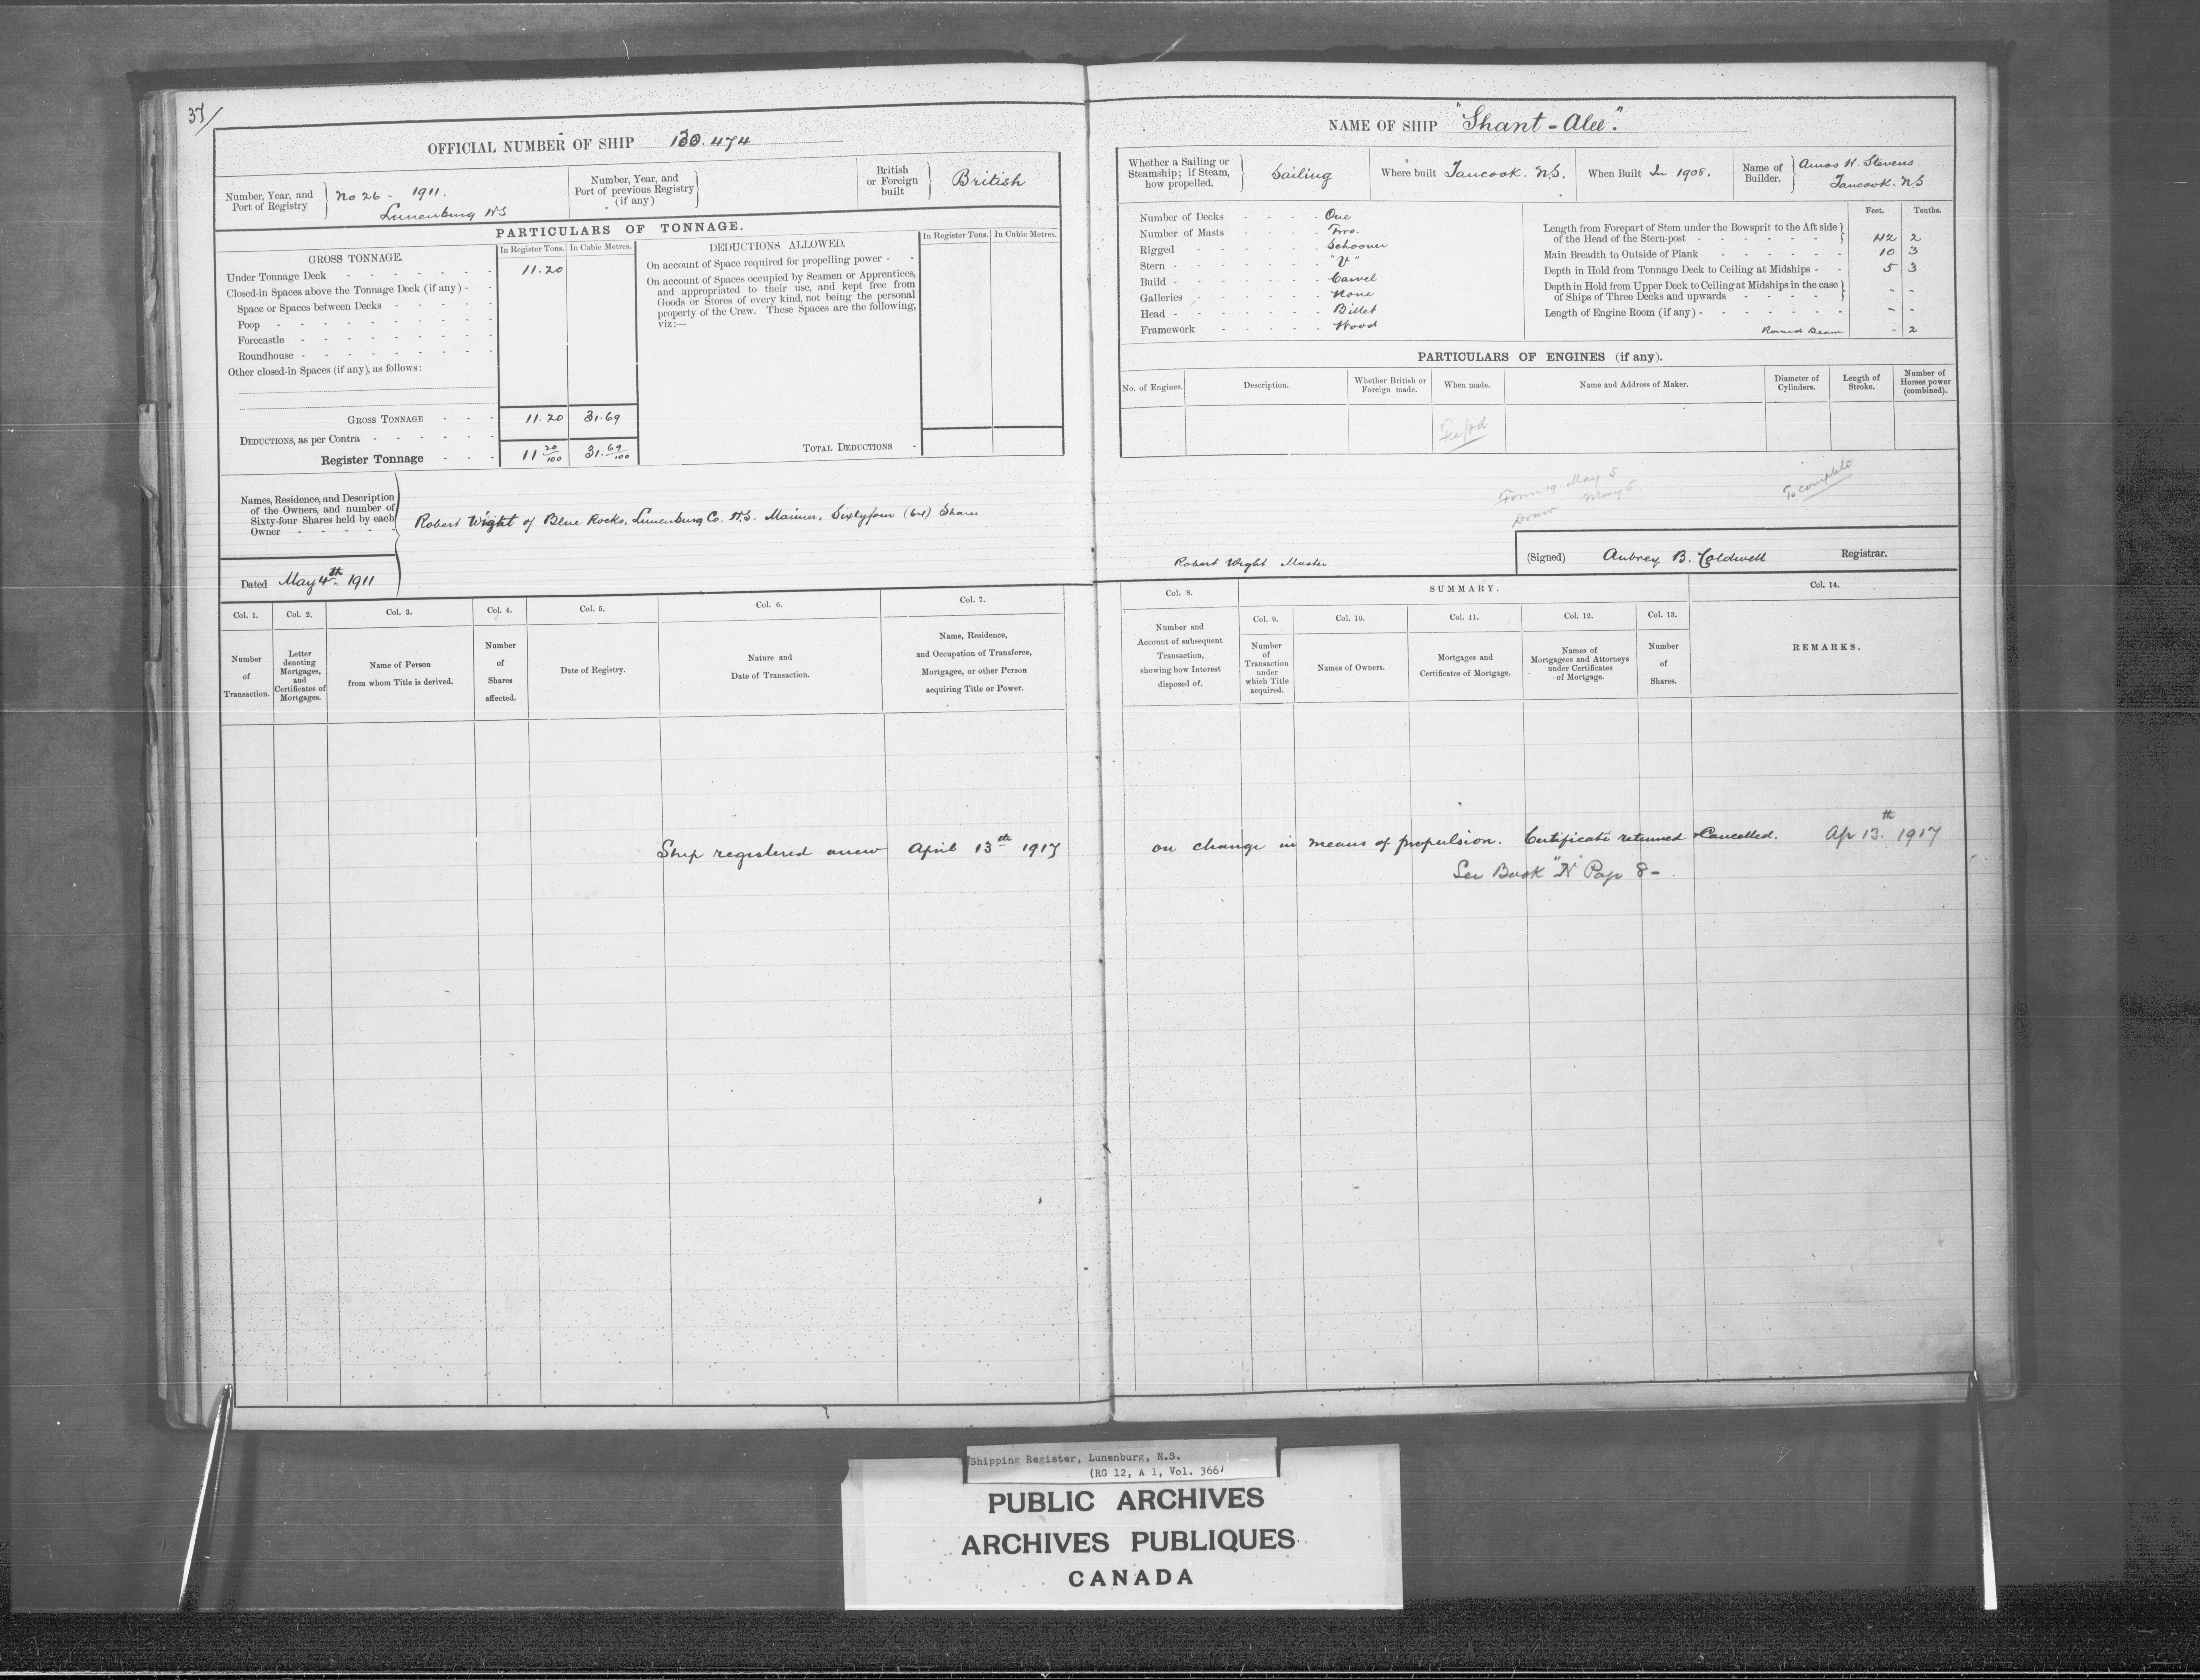 37/
OFFICIAL NUMBER OF SHIP 130.474
Number, Year, and Port of Registry
No 26 - 1911.
Lunenburg NS
Number, Year, and Port of previous Registry (if any)
British or Foreign built
British
PARTICULARS OF TONNAGE.
GROSS TONNAGE.
In Register Tons. In Cubic Metres.
DEDUCTIONS ALLOWED.
In Register Tons. In Cubic Metres.
Under Tonnage Deck - - - - - - - 11.20
Closed-in Spaces above the Tonnage Deck (if any) - -
Space or Spaces between Decks - - - - -
Poop - - - - - - - - - -
Forecastle - - - - - - - - -
Roundhouse - - - - - - - - -
Other closed-in Spaces (if any), as follows:
On account of Space required for propelling power - -
On account of Spaces occupied by Seamen or Apprentices,
and appropriated to their use, and kept free from
Goods or Stores of every kind, not being the personal
property of the Crew. These Spaces are the following,
viz:—
GROSS TONNAGE - - - 11.20 31.69
DEDUCTIONS, as per Contra - - - - - -
Register Tonnage - - - 11 20/100 31. 69/100
TOTAL DEDUCTIONS -
Names, Residence, and Description
of the Owners, and number of
Sixty-four Shares held by each
Owner - - - -
Robert Wight of Blue Rocks, Lunenburg Co. N.S. Mariner, Sixtyfour (64) Shares
Dated May 4th 1911
Col. 1. Col. 2. Col. 3. Col. 4. Col. 5. Col. 6. Col. 7.
Number of Transaction.
Letter denoting Mortgages, and Certificates of Mortgages.
Name of Person from whom Title is derived.
Number of Shares affected.
Date of Registry.
Nature and Date of Transaction.
Name, Residence, and Occupation of Transferee, Mortgagee, or other Person acquiring Title or Power.
Ship registered anew April 13th 1917
NAME OF SHIP "Shant-Alee."
Whether a Sailing or Steamship; if Steam, how propelled.
Sailing
Where built Tancook. N.S.
When Built In 1908.
Name of Builder.
Amos H. Stevens
Tancook. N.S
Number of Decks - - - - One
Number of Masts - - - - Two.
Rigged - - - - - - Schooner
Stern - - - - - - "V"
Build - - - - - - Carvel
Galleries - - - - - None
Head - - - - - - Billet
Framework - - - - - Wood
Feet. Tenths.
Length from Forepart of Stem under the Bowsprit to the Aft side
of the Head of the Stern-post - - - - - - 42 2
Main Breadth to Outside of Plank - - - - - - 10 3
Depth in Hold from Tonnage Deck to Ceiling at Midships - - 5 3
Depth in Hold from Upper Deck to Ceiling at Midships in the case
of Ships of Three Decks and upwards - - - - - -
Length of Engine Room (if any) - - - - - - - - -
Round Beam - 2
PARTICULARS OF ENGINES (if any).
No. of Engines.
Description.
Whether British or Foreign made.
When made.
Name and Address of Maker.
Diameter of Cylinders.
Length of Stroke.
Number of Horses power (combined).
Fee pd
Form 19. May 5
May 5
Drawn
To complete
Robert Wight Master
(Signed) Aubrey B. Caldwell Registrar.
Col. 8. SUMMARY. Col. 14.
Col. 9. Col. 10. Col. 11. Col. 12. Col. 13.
Number and Account of subsequent Transaction, showing how Interest disposed of.
Number of Transaction under which Title acquired.
Names of Owners.
Mortgages and Certificates of Mortgage.
Names of Mortgagees and Attorneys under Certificates of Mortgage.
Number of Shares.
REMARKS.
on change in means of propulsion. Certificate returned & Cancelled. Ap 13th 1917
See Book "N" Page 8 -
Shipping Register, Lunenburg, N.S.
(RG 12, A 1, Vol. 366)
PUBLIC ARCHIVES
ARCHIVES PUBLIQUES
CANADA